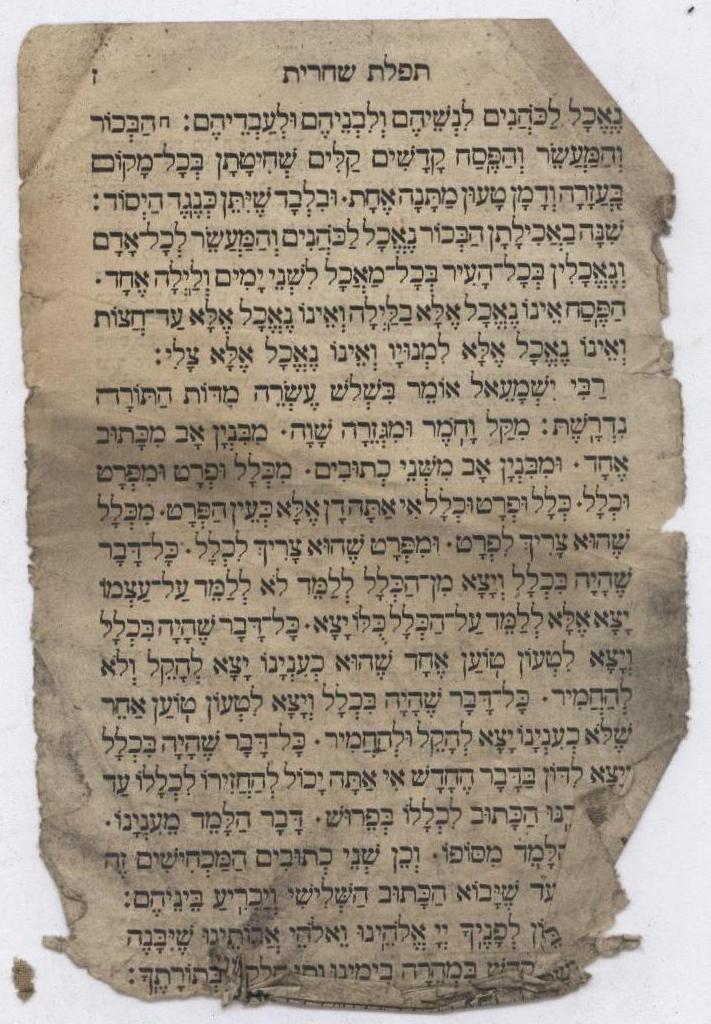 תפלת שחרית
ז
נֶאֱכָל לַכֹּהֲנִים לִנְשֵׁיהֶם וְלִבְנֵיהֶם וּלְעַבְדֵיהֶם: ח הַבְּכוֹר
וְהַמַּעֲשֵׂר וְהַפֶּסַח קָדָשִׁים קַלִּים שְׁחִיטָתָן בְּכָל־מָקוֹם
בָּעֲזָרָה וְדָמָן טָעוּן מַתָּנָה אֶחָת. וּבִלְבַד שֶׁיִּתֵּן כְּנֶגֶד הַיְסוֹד:
שִׁנָּה בַאֲכִילָתָן הַבְּכוֹר נֶאֱכָל לַכֹּהֲנִים וְהַמַּעֲשֵׂר לְכָל־אָדָם
וְנֶאֱכָלִין בְּכָל־הָעִיר בְּכָל־מַאֲכָל לִשְׁנֵי יָמִים וְלַיְלָה אֶחָד.
הַפֶּסַח אֵינוֹ נֶאֱכָל אֶלָּא בַלַּיְלָה וְאֵינוֹ נֶאֱכָל אֶלָּא עַד־חֲצוֹת
וְאֵינוֹ נֶאֱכָל אֶלָּא לִמְנוּיָו וְאֵינוֹ נֶאֱכָל אֶלָּא צָלִי:
רַבִּי יִשְׁמָעֵאל אוֹמֵר בִּשְׁלֹשׁ עֶשְׂרֵה מִדּוֹת הַתּוֹרָה
נִדְרֶשֶׁת: מִקַּל וָחֹמֶר וּמִגְּזֵרָה שָׁוָה. מִבִּנְיַן אָב מִכָּתוּב
אֶחָד. וּמִבִּנְיַן אָב מִשְּׁנֵי כְתוּבִים. מִכְּלָל וּפְרָט וּמִפְּרָט
וּכְלָל. כְּלָל וּפְרָט וּכְלָל אִי אַתָּה דָן אֶלָּא כְּעֵין הַפְּרָט. מִכְּלָל
שֶׁהוּא צָרִיךְ לִפְרָט. וּמִפְּרָט שֶׁהוּא צָרִיךְ לִכְלָל. כָּל־דָּבָר
שֶׁהָיָה בִּכְלָל וְיָצָא מִן־הַכְּלָל לְלַמֵּד לֹא לְלַמֵּד עַל־עַצְמוֹ
יָצָא אֶלָּא לְלַמֵּד עַל־הַכְּלָל כֻּלּוֹ יָצָא. כָּל־דָּבָר שֶׁהָיָה בִּכְלָל
וְיָצָא לִטְעוֹן טוֹעַן אֶחָד שֶׁהוּא כְעִנְיָנוֹ יָצָא לְהָקֵל וְלֹא
לְהַחֲמִיר. כָּל־דָּבָר שֶׁהָיָה בִּכְלָל וְיָצָא לִטְעוֹן טוֹעַן אַחֵר
שֶׁלֹּא כְעִנְיָנוֹ יָצָא לְהָקֵל וּלְהַחֲמִיר. כָּל־דָּבָר שֶׁהָיָה בִּכְלָל
וְיָצָא לִדּוֹן בַּדָּבָר הֶחָדָשׁ אִי אַתָּה יָכוֹל לְהַחֲזִירוֹ לִכְלָלוֹ עַד
הַכָּתוּב לִכְלָלוֹ בְּפֵרוּשׁ. דָּבָר הַלָּמֵד מֵעִנְיָנוֹ.
הַלָּמֵד מִסּוֹפוֹ. וְכֵן שְׁנֵי כְתוּבִים הַמַּכְחִישִׁים זֶה
עַד שֶׁיָּבוֹא הַכָּתוּב הַשְּׁלִישִׁי וְיַכְרִיעַ בֵּינֵיהֶם:
לְפָנֶיךָ יְיָ אֱלֹהֵינוּ וֵאלֹהֵי אֲבוֹתֵינוּ שֶׁיִּבָּנֶה
בִּמְהֵרָה בְיָמֵינוּ בְּתוֹרָתֶךָ: